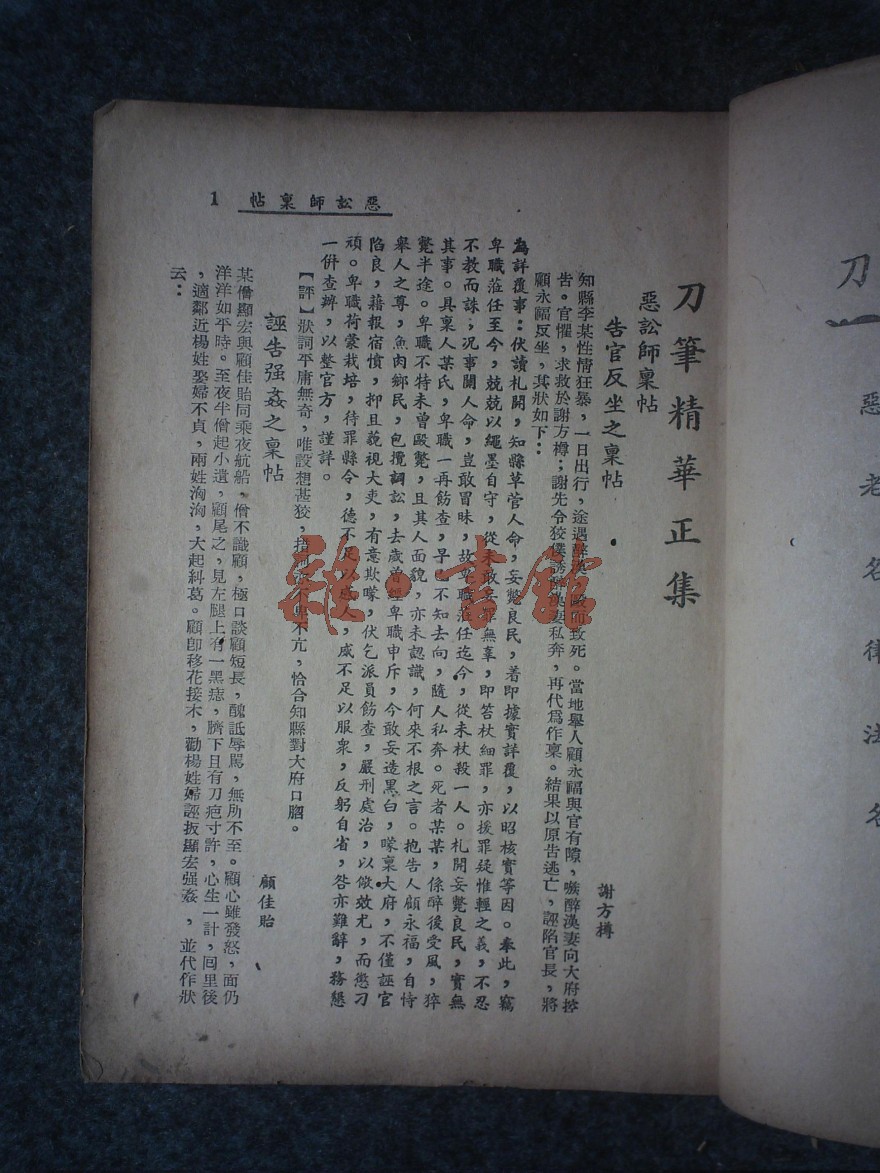 刀筆精華正集
惡訟師稟帖
告官反坐之稟帖
謝方樽
知縣李某性情狂暴,一日出行,途遇醉漢,毆而致死。當地舉人顧永福與官有隙,嗾醉漢妻向大府控
告。官懼,求救於謝方樽;謝先令狡僕誘醉漢妻私奔,再代爲作稟。結果以原告逃亡,誣陷官長,將
顧永福反坐,其狀如下:
為詳覆事:伏讀札開,知縣草菅人命,妄斃良民,着即據實詳覆,以昭核實等因。奉此,竊
卑職蒞任至今,兢兢以繩墨自守,從未敢妄罪無辜,即笞杖細罪,亦援罪疑惟輕之義,不忍
不教而誅;況事關人命,豈敢冒昧,故卑職蒞任迄今,從未杖殺一人。札開妄斃良民,實無
其事。具稟人某氏,卑職一再飭查,早已不知去向,隨人私奔。死者某某,係醉後受風,猝
斃半途。卑職不特未曾毆斃,且其人面貌,亦未認識,何來不根之言。抱告人顧永福,自恃
舉人之尊,魚肉鄉民,包攬詞訟,去歲曾經卑職申斥,今敢妄造黑白,曚稟大府,不僅誣官
陷良,藉報宿憤,抑且藐視大吏,有意欺曚,伏乞派員飭查,嚴刑處治,以儆效尤,而懲刁
頑。卑職荷蒙栽培,待罪縣令,德不足以感人,威不足以服衆,反躬自省,咎亦難辭,務懇
一併查辦,以整官方,謹詳。
【評】狀詞平庸無奇,唯設想甚狡,措詞不卑不亢,恰合知縣對大府口脗。
誣告强姦之稟帖
顧佳貽
某僧顯宏與顧佳貽同乘夜航船,僧不識顧,極口談顧短長,醜詆辱駡,無所不至。顧心雖發怒,面仍
洋洋如平時。至夜半僧起小遺,顧尾之,見左腿上有一黑痣,臍下且有刀疤寸許,心生一計,囘里後
,適鄰近楊姓娶婦不貞,兩姓洶洶,大起糾葛。顧卽移花接木,勸楊姓婦誣扳顯宏强姦,並代作狀
云:
惡訟師稟帖 1
雜·書館
刀
惡
老
名
律
法
名